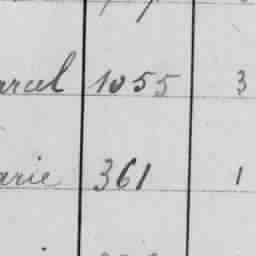 arcel 1055 3
arie 361 1